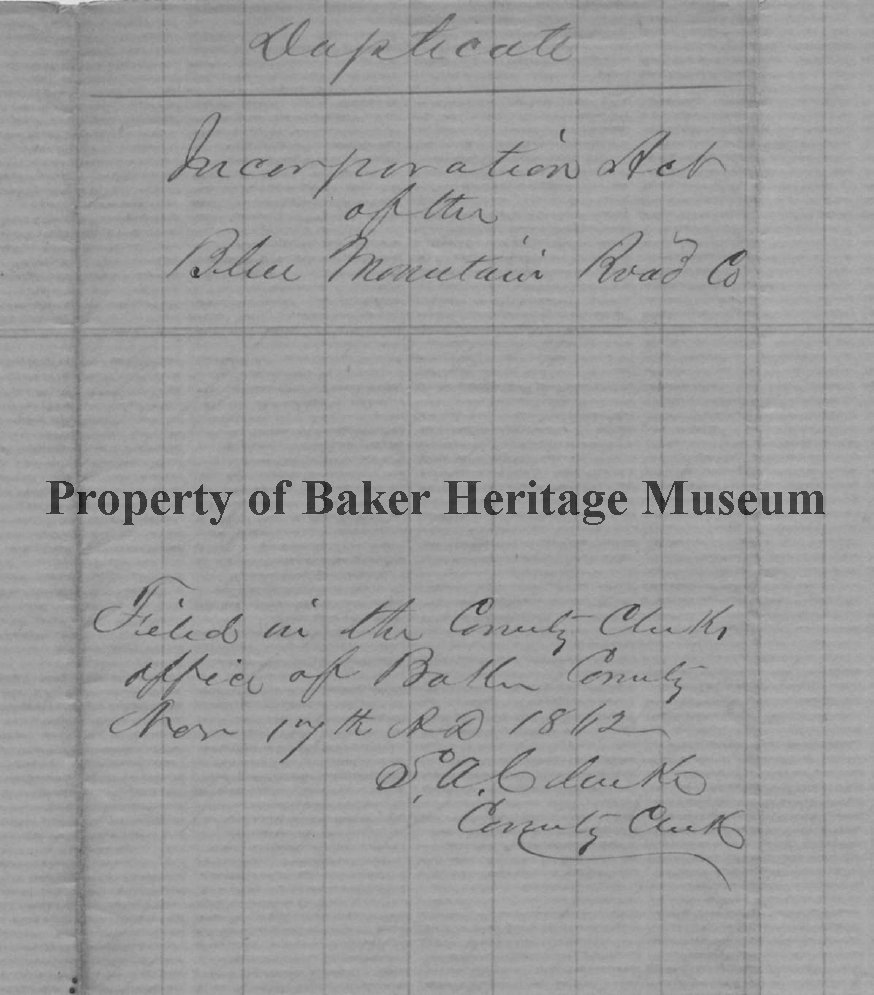 Duplicate
Incorporation Act
of the
Blue Mountain Road Co
Property of Baker Heritage Museum
Filed in the County Clerks
office of Baker County
Nov 17th AD 1862
S. A. Clarke
County Clerk